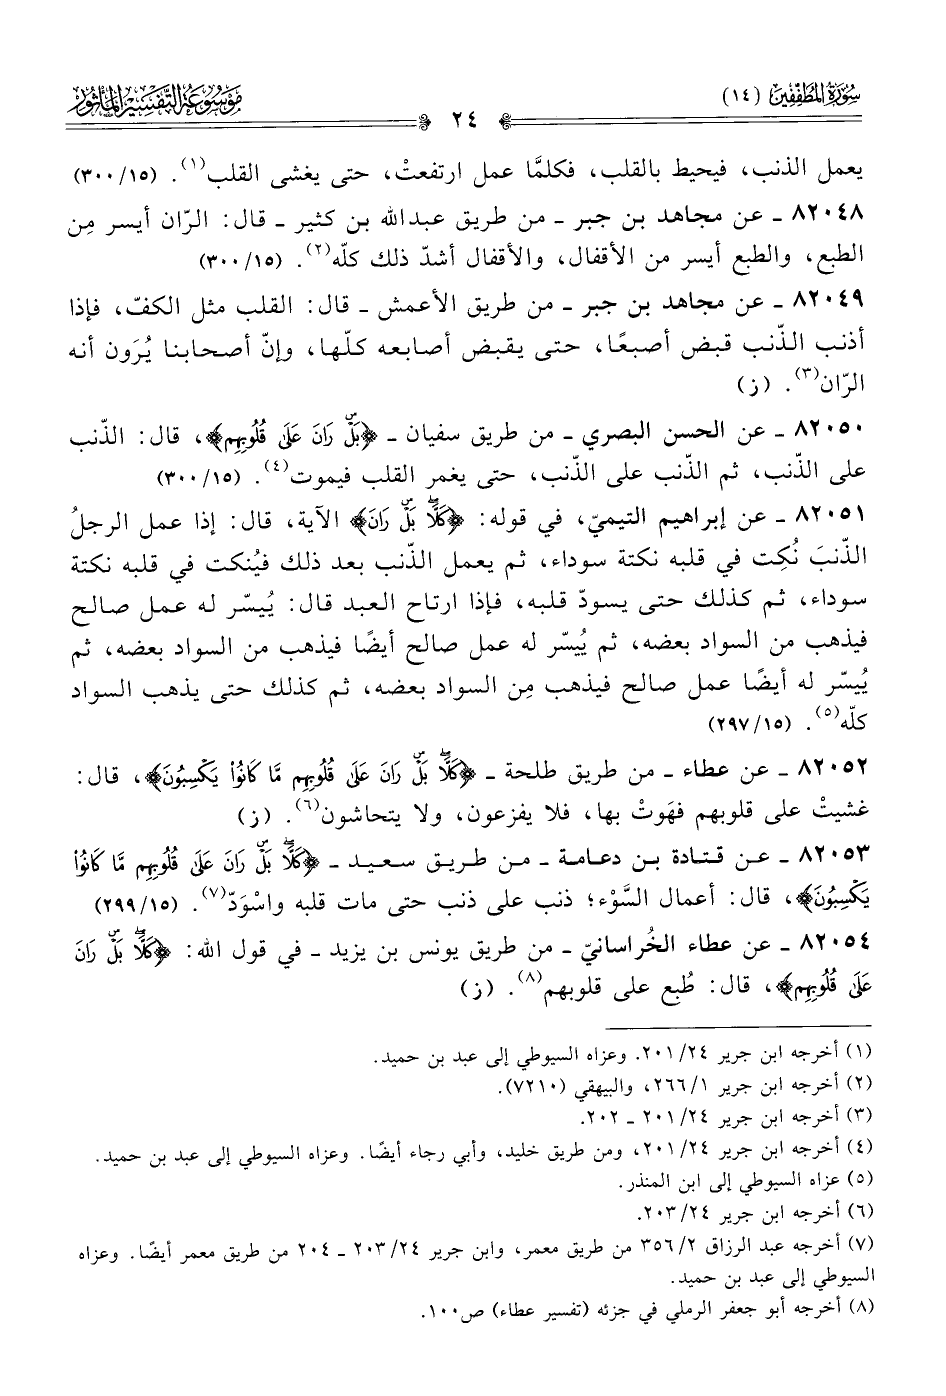 سُورَةُ المُطَفِّفِين (١٤)
٢٤
مَوْسُوعَة التَّفْسِير المَأْثُور
يعمل الذنب، فيحيط بالقلب، فكلمَّا عمل ارتفعتْ، حتى يغشى القلب(١). (١٥/ ٣٠٠)
٨٢٠٤٨ ـ عن مجاهد بن جبر ـ من طريق عبدالله بن كثير ـ قال: الرّان أيسر مِن
الطبع، والطبع أيسر من الأقفال، والأقفال أشدّ ذلك كلّه(٢). (١٥/ ٣٠٠)
٨٢٠٤٩ ـ عن مجاهد بن جبر ـ من طريق الأعمش ـ قال: القلب مثل الكفّ، فإذا
أذنب الذّنب قبض أصبعًا، حتى يقبض أصابعه كلّها، وإنّ أصحابنا يُرَون أنه
الرّان(٣). (ز)
٨٢٠٥٠ ـ عن الحسن البصري ـ من طريق سفيان ـ ﴿بَلْۜ رَانَ عَلَىٰ قُلُوبِهِم﴾، قال: الذّنب
على الذّنب، ثم الذّنب على الذّنب، حتى يغمر القلب فيموت(٤). (١٥/ ٣٠٠)
٨٢٠٥١ ـ عن إبراهيم التيميّ، في قوله: ﴿كَلَّاۖ بَلْۜ رَانَ﴾ الآية، قال: إذا عمل الرجلُ
الذّنبَ نُكِت في قلبه نكتة سوداء، ثم يعمل الذّنب بعد ذلك فيُنكت في قلبه نكتة
سوداء، ثم كذلك حتى يسودّ قلبه، فإذا ارتاح العبد قال: يُيسّر له عمل صالح
فيذهب من السواد بعضه، ثم يُيسّر له عمل صالح أيضًا فيذهب من السواد بعضه، ثم
يُيسّر له أيضًا عمل صالح فيذهب مِن السواد بعضه، ثم كذلك حتى يذهب السواد
كلّه(٥). (١٥/ ٢٩٧)
٨٢٠٥٢ ـ عن عطاء ـ من طريق طلحة ـ ﴿كَلَّاۖ بَلْۜ رَانَ عَلَىٰ قُلُوبِهِم مَّا كَانُوا۟ يَكْسِبُونَ﴾، قال:
غشيتْ على قلوبهم فهَوَتْ بها، فلا يفزعون، ولا يتحاشون(٦). (ز)
٨٢٠٥٣ ـ عن قتادة بن دعامة ـ من طريق سعيد ـ ﴿كَلَّاۖ بَلْۜ رَانَ عَلَىٰ قُلُوبِهِم مَّا كَانُوا۟
يَكْسِبُونَ﴾، قال: أعمال السَّوْء؛ ذنب على ذنب حتى مات قلبه واسْوَدّ(٧). (١٥/ ٢٩٩)
٨٢٠٥٤ ـ عن عطاء الخُراسانيّ ـ من طريق يونس بن يزيد ـ في قول الله: ﴿كَلَّاۖ بَلْۜ رَانَ
عَلَىٰ قُلُوبِهِم﴾، قال: طُبع على قلوبهم(٨). (ز)
(١) أخرجه ابن جرير ٢٤/ ٢٠١. وعزاه السيوطي إلى عبد بن حميد.
(٢) أخرجه ابن جرير ١/ ٢٦٦، والبيهقي (٧٢١٠).
(٣) أخرجه ابن جرير ٢٤/ ٢٠١ ـ ٢٠٢.
(٤) أخرجه ابن جرير ٢٤/ ٢٠١، ومن طريق خليد، وأبي رجاء أيضًا. وعزاه السيوطي إلى عبد بن حميد.
(٥) عزاه السيوطي إلى ابن المنذر.
(٦) أخرجه ابن جرير ٢٤/ ٢٠٣.
(٧) أخرجه عبد الرزاق ٢/ ٣٥٦ من طريق معمر، وابن جرير ٢٤/ ٢٠٣ ـ ٢٠٤ من طريق معمر أيضًا. وعزاه
السيوطي إلى عبد بن حميد.
(٨) أخرجه أبو جعفر الرملي في جزئه (تفسير عطاء) ص١٠٠.